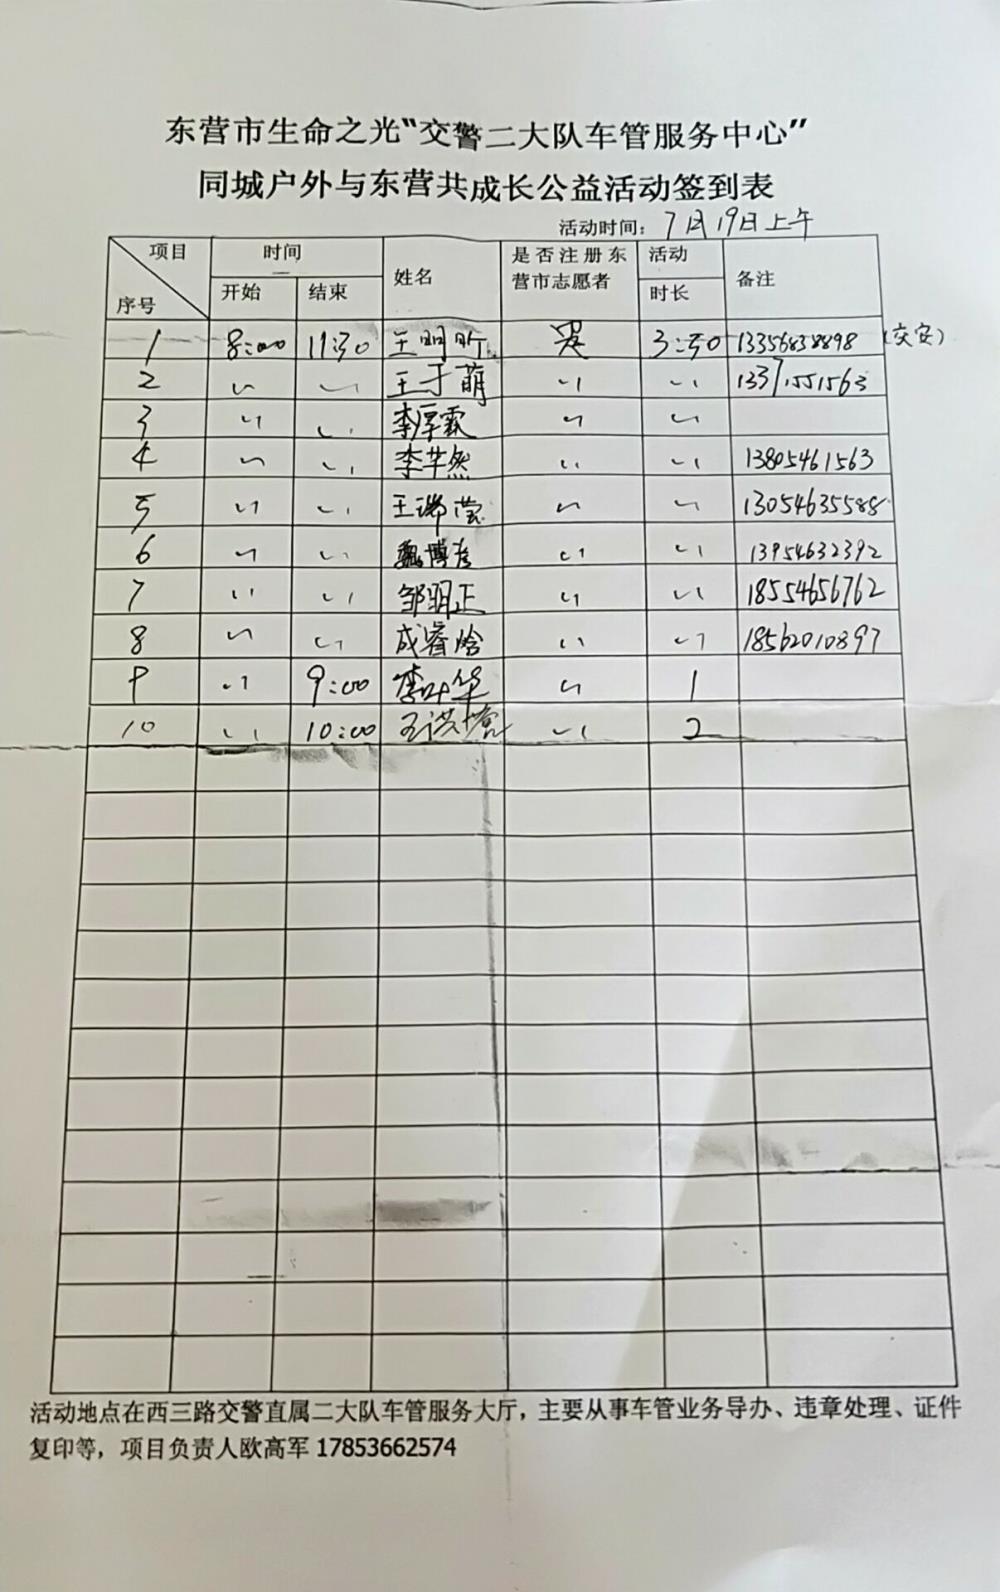 东营市生命之光“交警二大队车管服务中心”
同城户外与东营共成长公益活动签到表
活动时间：7月19日上午
项目 序号 时间 开始 结束 姓名 是否注册东营市志愿者 活动时长 备注
1 8:00 11:30 王明昕 是 3:30 13356838898 (交安)
2 〃 〃 王子萌 〃 〃 13371551563
3 〃 〃 李厚霖 〃 〃
4 〃 〃 李芊然 〃 〃 13805461563
5 〃 〃 王瑞莹 〃 〃 13054635588
6 〃 〃 魏博彦 〃 〃 13954632392
7 〃 〃 邹明正 〃 〃 18554656762
8 〃 〃 成睿 〃 〃 18562010897
9 〃 9:00 李叶华 〃 1
10 〃 10:00 王洪 〃 2
活动地点在西三路交警直属二大队车管服务大厅，主要从事车管业务导办、违章处理、证件
复印等，项目负责人欧高军 17853662574